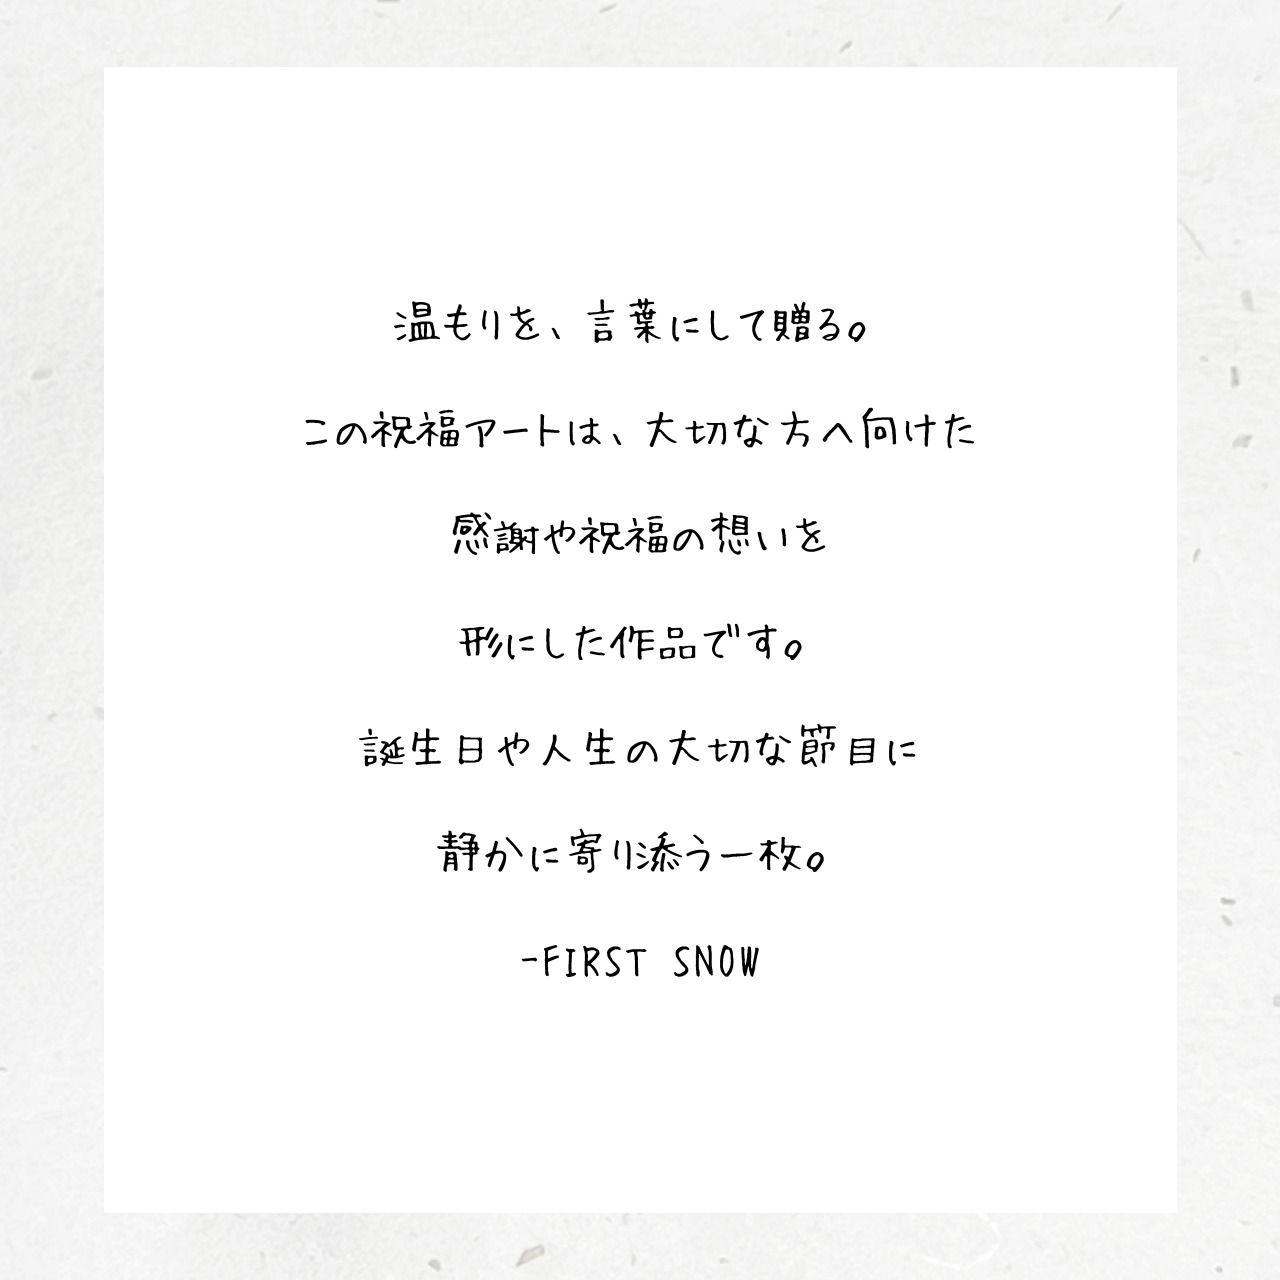 温もりを、言葉にして贈る。
この祝福アートは、大切な方へ向けた
感謝や祝福の想いを
形にした作品です。
誕生日や人生の大切な節目に
静かに寄り添う一枚。
-FIRST SNOW